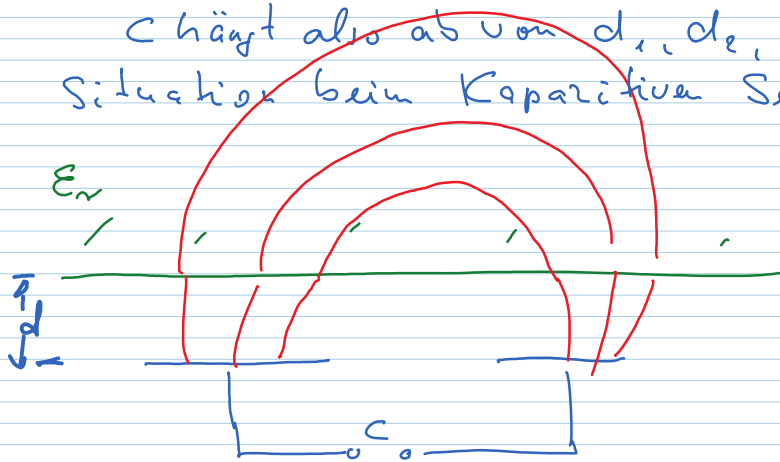 C hängt also ab von d₁, d₂,
Situation beim Kapazitiven
εr
d
C